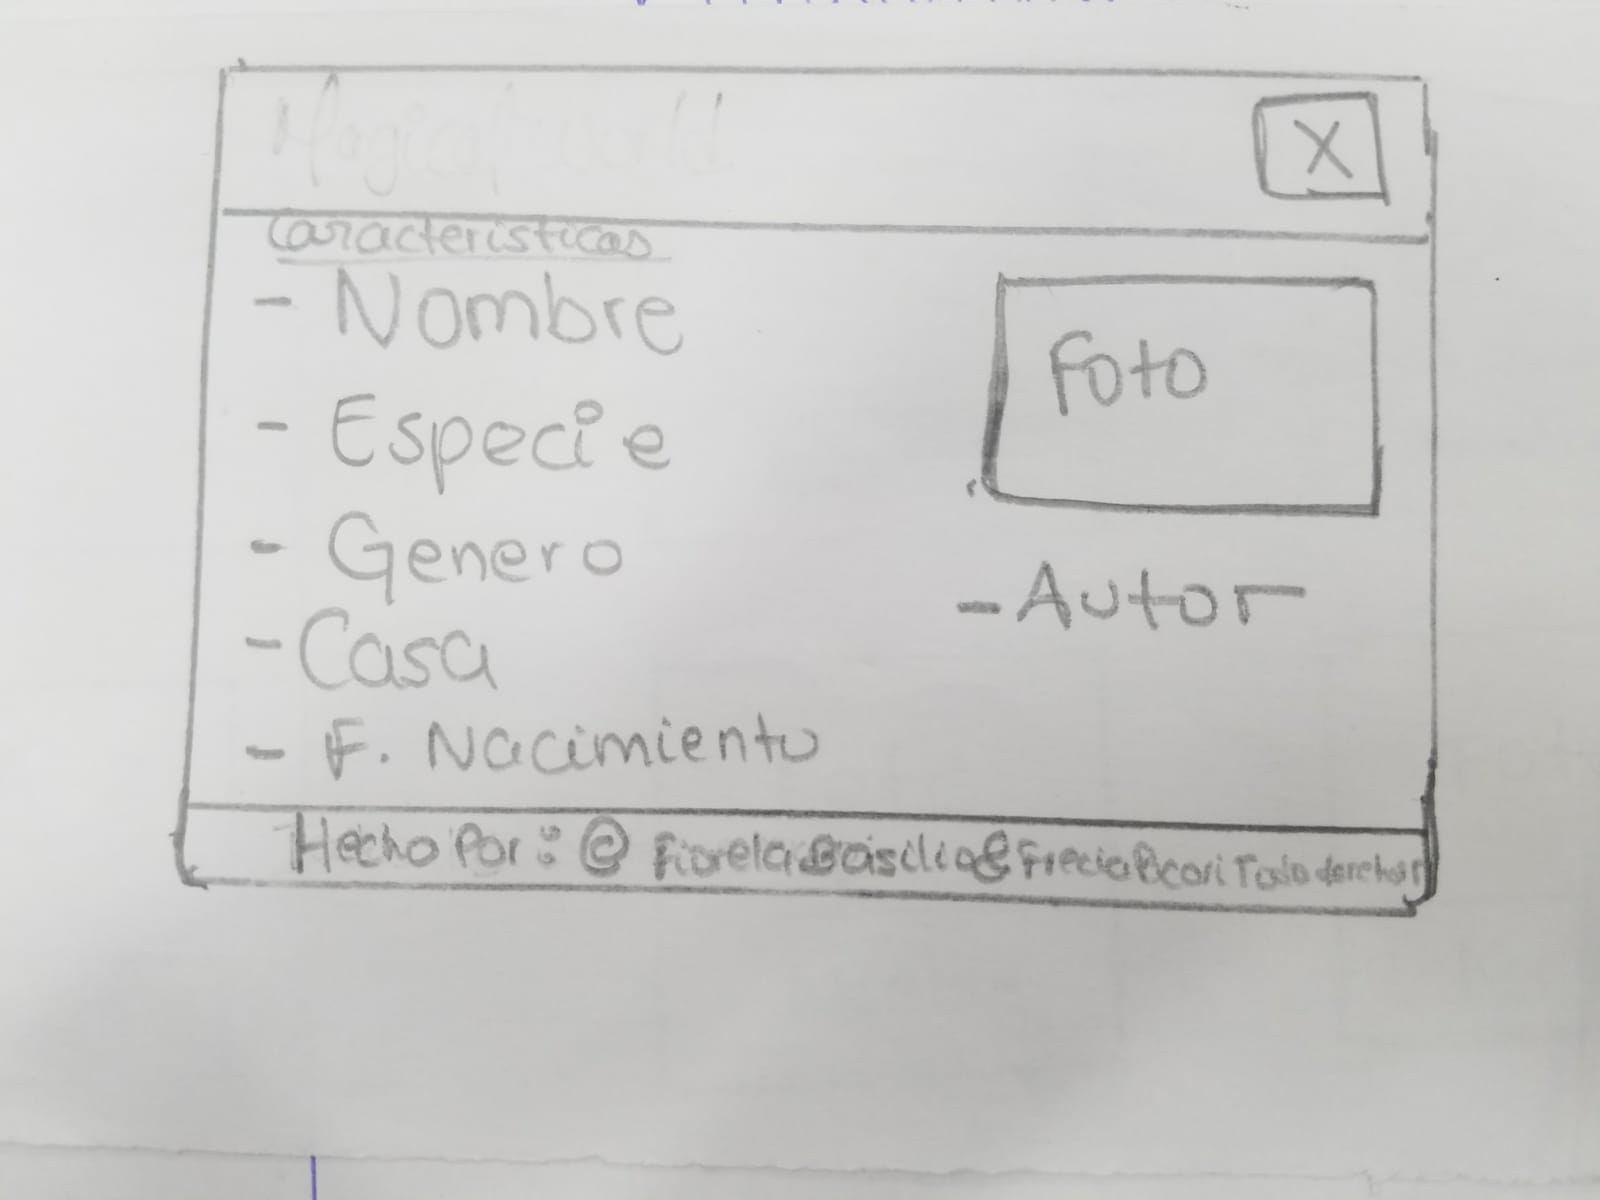 Magical world
X
Caracteristicas
- Nombre
- Especie
- Genero
- Casa
- F. Nacimiento
Foto
- Autor
Hecho Por: @ Fiorela Basilio & Frecia